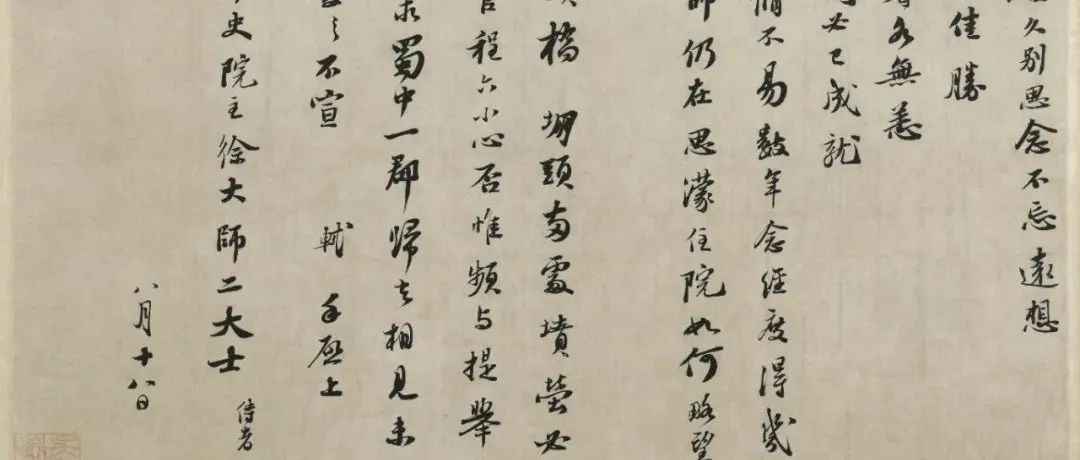 久別思念不忘遠想
佳勝
各無恙
必已成就
脩不易數年念經度得幾
師仍在思濛住院如何略望
橋 堋頭兩處墳塋必
程六小心否惟頻與提舉
求蜀中一郡歸去相見未
之不宣 軾 手啓上
史院主徐大師二大士
侍者
八月十八日